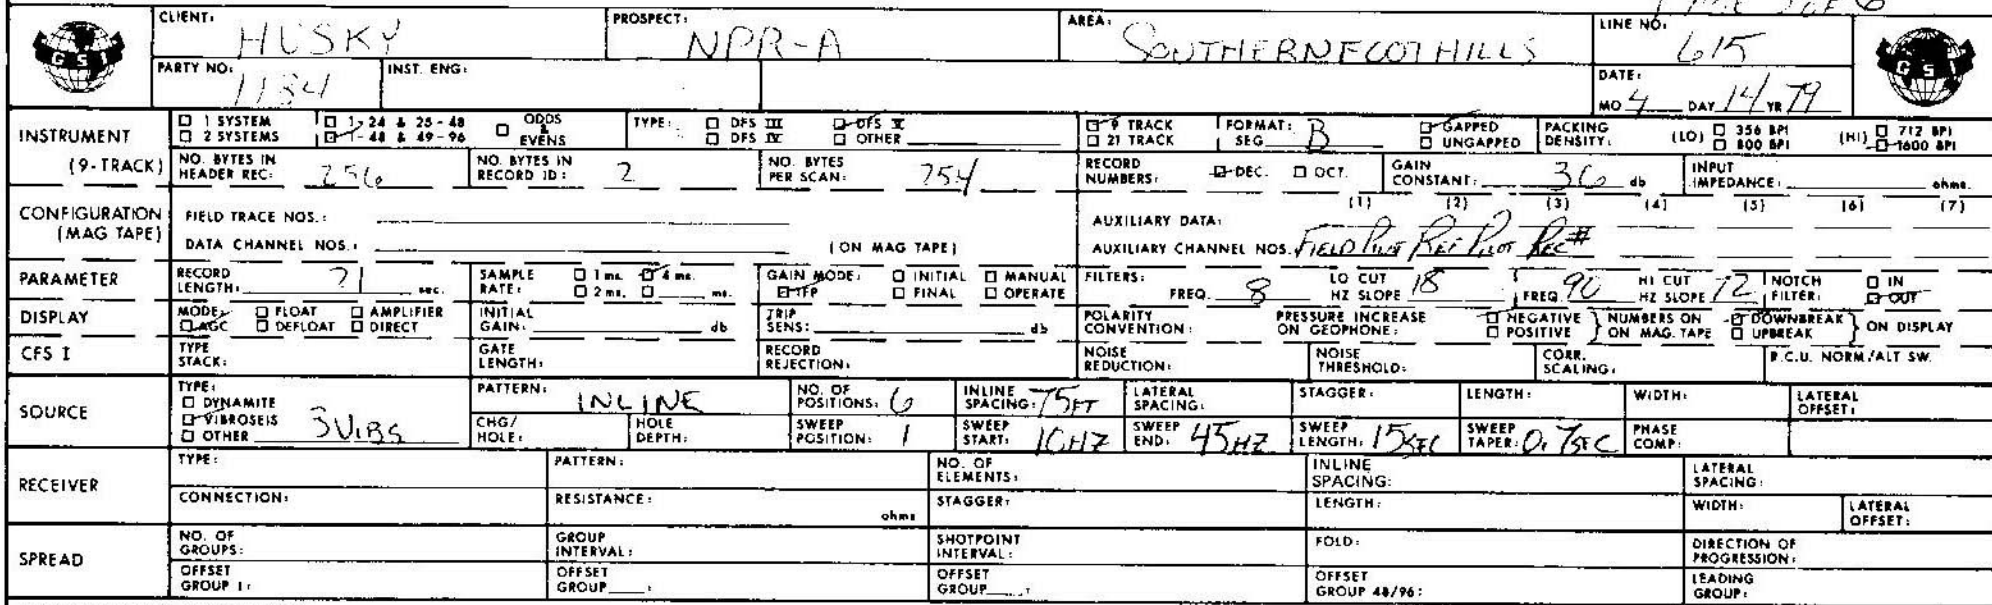 PAGE 1 OF 6
CLIENT: HUSKY PROSPECT: NPR-A AREA: SOUTHERN FOOTHILLS LINE NO: 615
GSI
GSI
PARTY NO: 1184 INST. ENG: DATE: MO 4 DAY 14 YR 79
INSTRUMENT (9-TRACK)
1 SYSTEM 1-24 & 25-48 ODDS & EVENS TYPE: DFS III DFS V 9 TRACK FORMAT: SEG B GAPPED PACKING DENSITY: (LO) 356 BPI (HI) 712 BPI
2 SYSTEMS 1-48 & 49-96 DFS IV OTHER 21 TRACK UNGAPPED 800 BPI 1600 BPI
NO. BYTES IN HEADER REC: 256 NO. BYTES IN RECORD ID: 2 NO. BYTES PER SCAN: 254 RECORD NUMBERS: DEC. OCT. GAIN CONSTANT: 36 db INPUT IMPEDANCE: ohms.
CONFIGURATION (MAG TAPE)
FIELD TRACE NOS.: AUXILIARY DATA: (1) (2) (3) (4) (5) (6) (7)
DATA CHANNEL NOS.: (ON MAG TAPE) AUXILIARY CHANNEL NOS. FIELD PILOT REF PILOT REC#
PARAMETER RECORD LENGTH: 21 sec. SAMPLE RATE: 1 ms. 4 ms. 2 ms. ms. GAIN MODE: INITIAL MANUAL IFP FINAL OPERATE FILTERS: FREQ. 8 LO CUT HZ SLOPE 18 FREQ. 90 HI CUT HZ SLOPE 72 NOTCH FILTER: IN OUT
DISPLAY MODE: FLOAT AMPLIFIER AGC DEFLOAT DIRECT INITIAL GAIN: db TRIP SENS: db POLARITY CONVENTION: PRESSURE INCREASE ON GEOPHONE: NEGATIVE POSITIVE NUMBERS ON ON MAG. TAPE DOWNBREAK UPBREAK ON DISPLAY
CFS I TYPE STACK: GATE LENGTH: RECORD REJECTION: NOISE REDUCTION: NOISE THRESHOLD: CORR. SCALING: R.C.U. NORM/ALT SW.
SOURCE
TYPE: DYNAMITE VIBROSEIS OTHER 3 VIBS PATTERN: INLINE NO. OF POSITIONS: 6 INLINE SPACING: 75FT LATERAL SPACING: STAGGER: LENGTH: WIDTH: LATERAL OFFSET:
CHG/HOLE: HOLE DEPTH: SWEEP POSITION: 1 SWEEP START: 10HZ SWEEP END: 45HZ SWEEP LENGTH: 15SEC SWEEP TAPER: 0.7SEC PHASE COMP:
RECEIVER
TYPE: PATTERN: NO. OF ELEMENTS: INLINE SPACING: LATERAL SPACING:
CONNECTION: RESISTANCE: ohms STAGGER: LENGTH: WIDTH: LATERAL OFFSET:
SPREAD
NO. OF GROUPS: GROUP INTERVAL: SHOTPOINT INTERVAL: FOLD: DIRECTION OF PROGRESSION:
OFFSET GROUP 1: OFFSET GROUP : OFFSET GROUP : OFFSET GROUP 48/96: LEADING GROUP: